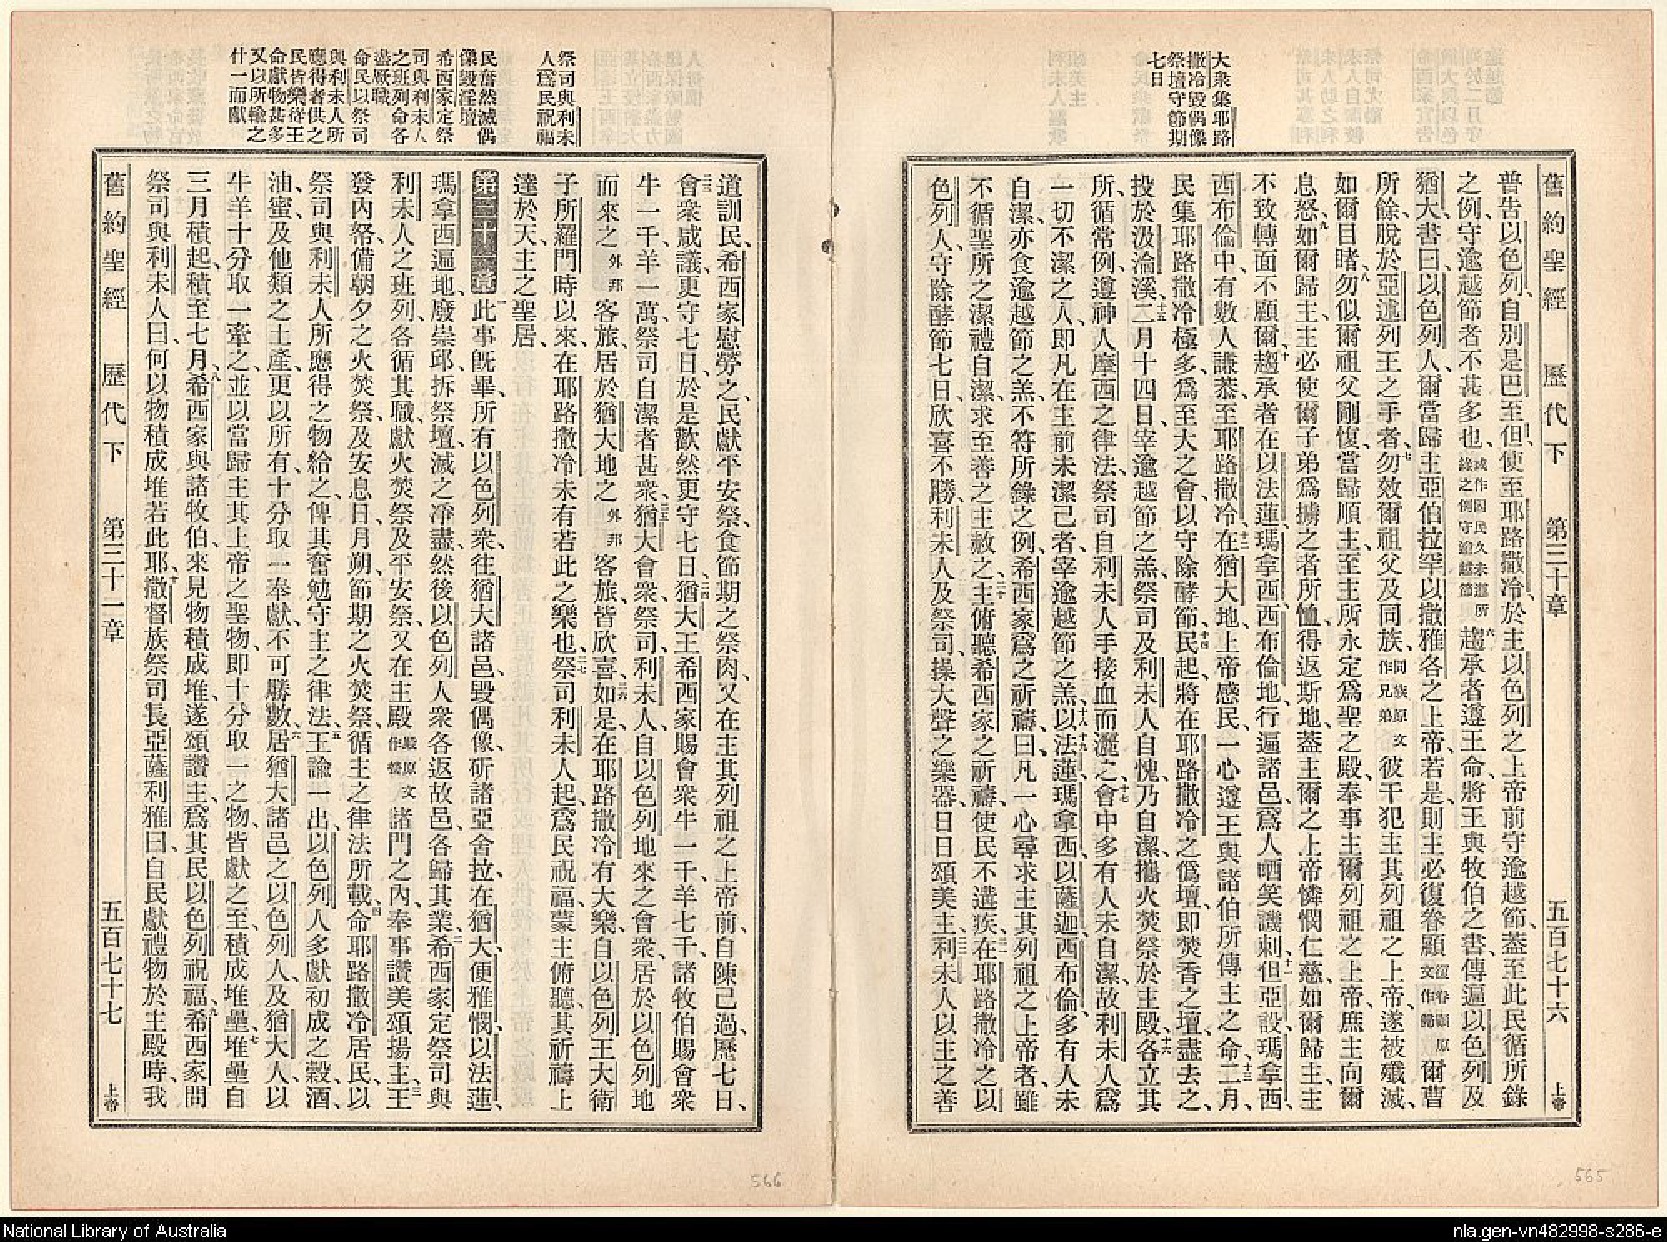 大衆集耶路
撒冷毀偶像
祭壇守節期
七日
舊約聖經 歷代下 第三十章 五百七十六 上帝
普告以色列自別是巴至但使至耶路撒冷於主以色列之上帝前守逾越節蓋至此民循所錄
之例守逾越節者不甚多也、或作因民久未遵所錄之例守逾越節六趨承者遵王命將王與牧伯之書傳遍以色列及
猶大書曰以色列人爾當歸主亞伯拉罕以撒雅各之上帝若是則主必復眷顧復眷顧原文作歸爾曹
所餘脫於亞述列王之手者七勿效爾祖父及同族同族原文作兄弟彼干犯主其列祖之上帝遂被殲滅
如爾目睹八勿似爾祖父剛愎當歸順主至主所永定爲聖之殿奉事主爾列祖之上帝庶主向爾
息怒九如爾歸主主必使爾子弟爲擄之者所恤得返斯地蓋主爾之上帝憐憫仁慈如爾歸主主
不致轉面不顧爾十趨承者在以法蓮瑪拿西西布倫地行遍諸邑爲人哂笑譏刺十一但亞設瑪拿西
西布倫中有數人謙恭至耶路撒冷十二在猶大地上帝感民一心遵王與諸伯所傳主之命十三二月
民集耶路撒冷極多爲至大之會以守除酵節十四民起將在耶路撒冷之僞壇即焚香之壇盡去之
投於汲淪溪十五二月十四日宰逾越節之羔祭司及利未人自愧乃自潔攜火焚祭於主殿十六各立其
所循常例遵神人摩西之律法祭司自利未人手接血而灑之十七會中多有人未自潔故利未人爲
一切不潔之人即凡在主前未潔己者宰逾越節之羔十八以法蓮瑪拿西以薩迦西布倫多有人未
自潔亦食逾越節之羔不符所錄之例希西家爲之祈禱曰凡一心尋求主其列祖之上帝者雖
不循聖所之潔禮自潔求至善之主赦之二十主俯聽希西家之祈禱使民不遘疾二一在耶路撒冷之以
色列人守除酵節七日欣喜不勝利未人及祭司操大聲之樂器日日頌美主二二利未人以主之善
祭司與利未
人爲民祝福
民奮然滅偶
像毀淫壇
希西家定祭
司與利未人
之班列命各
盡厥職
命民以祭司
與利未人所
應得者供之
民皆樂從王
命獻物甚多
又以所輸之
什一而獻
道訓民希西家慰勞之民獻平安祭食節期之祭肉又在主其列祖之上帝前自陳己過歷七日
二三會衆咸議更守七日於是歡然更守七日二四猶大王希西家賜會衆牛一千羊七千諸牧伯賜會衆
牛一千羊一萬祭司自潔者甚衆二五猶大會衆祭司利未人自以色列地來之會衆居於以色列地
而來之外邦客旅居於猶大地之外邦客旅皆欣喜二六如是在耶路撒冷有大樂自以色列王大衛
子所羅門時以來在耶路撒冷未有若此之樂也二七祭司利未人起爲民祝福蒙主俯聽其祈禱上
達於天主之聖居
第三十一章 一此事既畢所有以色列衆往猶大諸邑毀偶像斫諸亞舍拉在猶大便雅憫以法蓮
瑪拿西遍地廢崇邱拆祭壇滅之淨盡然後以色列人衆各返故邑各歸其業二希西家定祭司與
利未人之班列各循其職獻火焚祭及平安祭又在主殿殿原文作營諸門之內奉事讚美頌揚主三王
發內帑備朝夕之火焚祭及安息日月朔節期之火焚祭循主之律法所載四命耶路撒冷居民以
祭司與利未人所應得之物給之俾其奮勉守主之律法五王諭一出以色列人多獻初成之穀酒
油蜜及他類之土產更以所有十分取一奉獻不可勝數六居猶大諸邑之以色列人及猶大人以
牛羊十分取一牽之並以當歸主其上帝之聖物即十分取一之物皆獻之至積成堆壘七堆壘自
三月積起積至七月八希西家與諸牧伯來見物積成堆遂頌讚主爲其民以色列祝福九希西家問
祭司與利未人曰何以物積成堆若此十耶撒督族祭司長亞薩利雅曰自民獻禮物於主殿時我
舊約聖經 歷代下 第三十一章 五百七十七 上帝
566
565
National Library of Australia
nla.gen-vn482998-s286-e